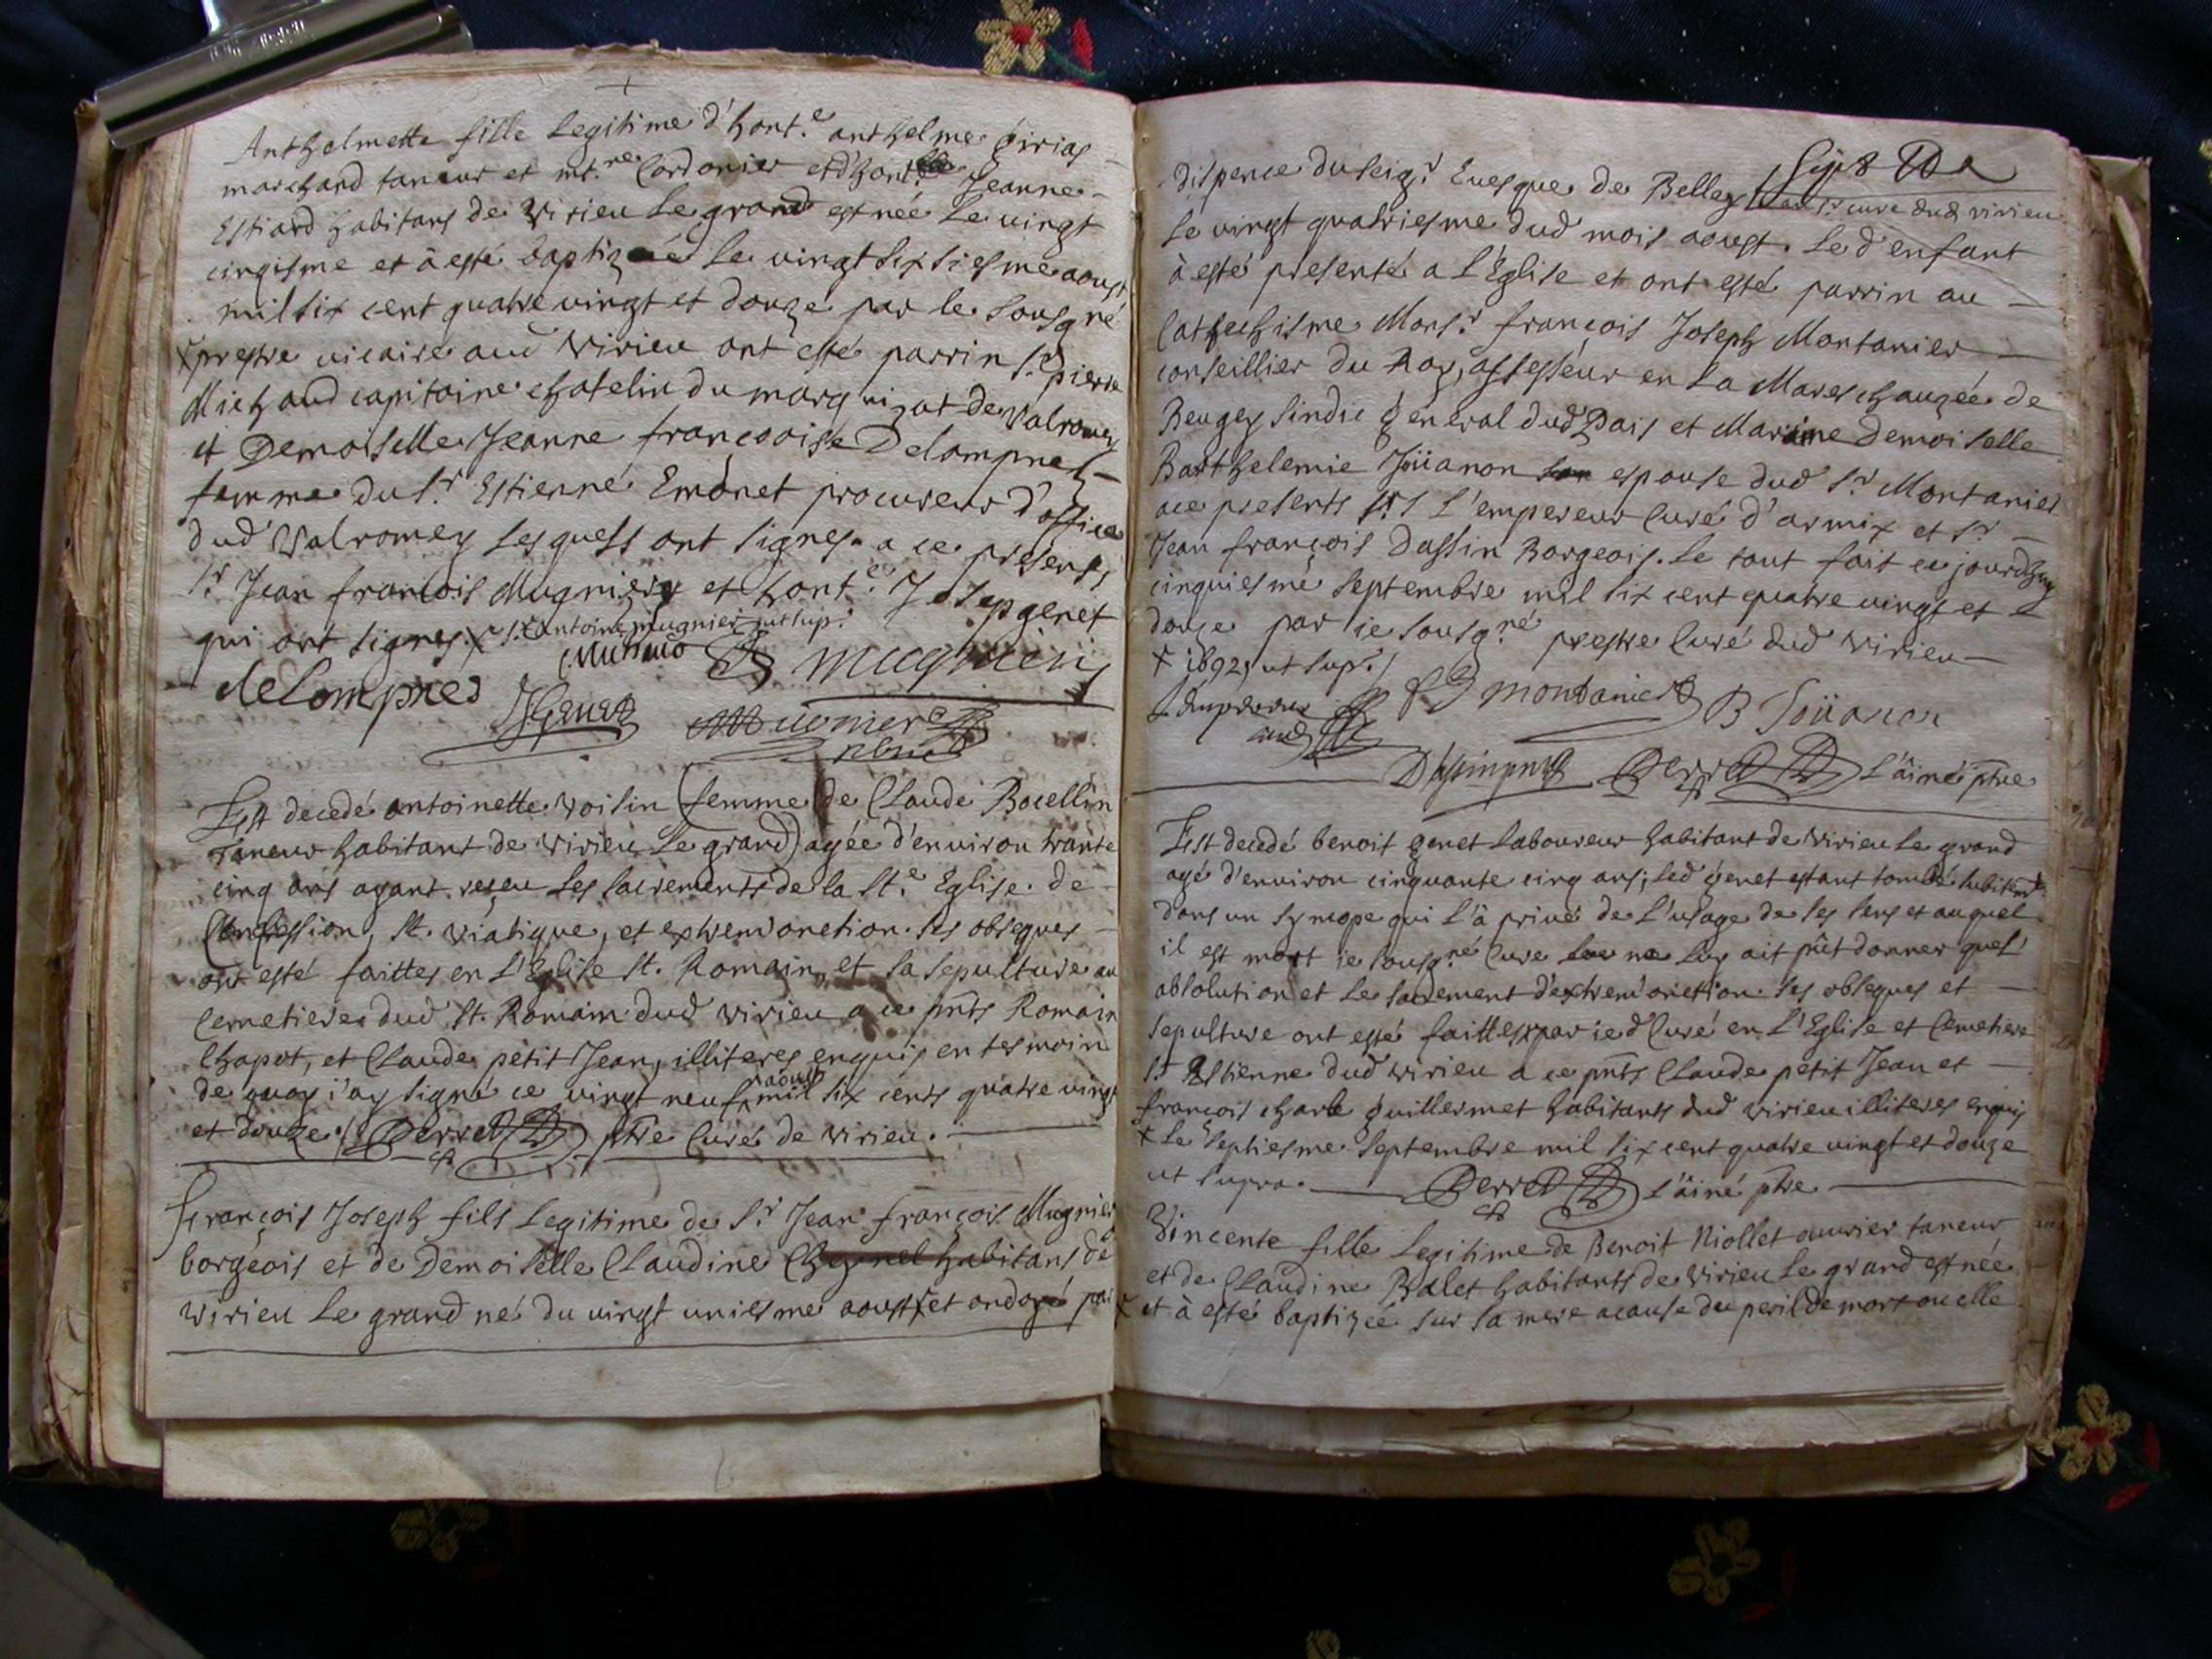 Anthelmette fille legitime d'hont.e anthelme girias
marchand taneur et mt.re Cordonier et d'hont.e Jeanne
Estiard habitans de Virieu le grand est née le vingt
cinqisme et à esté baptizeé le vingt sixiesme aoust
mil six cent quatre vingt et douze par le sousg.né
prestre vicaire aud Virieu ont esté parrin s.r pierre
Michaud capitaine chatelin du marquizat de Valromey
et Demoiselle Jeanne francooise Delompnes
femme du s.r Estienne Emonet procureur d'office
dud Valromey lesquels ont signes a ce presents
s.r Jean francois Mugniery et hont.e Joseph genet
qui ont signes s.r antoine mugnier ut sup.
Michaud mugniery
delompnes JGenet
Mugniere
Est decedé antoinette Voisin (femme de Claude Bocellin
Taneur habitant de Virieu le grand) agée d'environ trante
cinq ans ayant reçeu les sacrements de la St.e Eglise de
Confession, St. viatique, et extremonction. ses obseques
ont esté faittes en l'Eglise St. Romain, et sa sepulture au
Cemetiere dud St. Romain dud Virieu a ce pnts Romain
Chapot, et Claude petit Jean, illiteres enquis en tesmoin
de quoy j'ay signé ce vingt neuf aoust mil six cents quatre vingt
et douze Perret ptre Curé de Virieu.
François Joseph fils legitime de S.r Jean françois Mugnier
borgeois et de Demoiselle Claudine habitans de
Virieu le grand né du vingt uniesme aoust et ondoyé par
dispence du seig.r Evesque de Belley par s.r cure dud virieu
le vingt quatriesme dud mois aoust. led enfant
à esté presenté a l'Eglise et ont esté parrin au
Cathechisme Mons.r françois Joseph Montanier
conseillier du Roy, assesseur en la Mareschauzée de
Beugey sindic general dud Pais et Marine Demoiselle
Barthelemie Joüanon espouse dud S.r Montanier
ace presents s.r l'empereur Curé d'armix et s.r
Jean françois Dassin Borgeois. le tout fait ce jourdhuy
cinquiesme septembre mil six cent quatre vingt et
douze par ie sousg.né prestre Curé dud Virieu
1692 ut sup.
L'Empereur Montanier B Joüanon
Perret l'äiné ptre
Est decedé benoit genet laboureur habitant de Virieu le grand
agé d'environ cinquante cinq ans; led genet estant tombé subitem.t
dans un syncope qui l'à privé de l'usage de ses sens et auquel
il est mort ie sousg.né Cure ne luy ait pût donner quel'
absolution et le sacrement d'extremonction. ses obseques et
sepulture ont esté faittes par ied Curé en l'Eglise et Cemetiere
St Estienne dud virieu a ce pnts Claude petit Jean et
françois charle guillermet habitants dud virieu illiteres enquis
le septiesme septembre mil six cent quatre vingt et douze
ut supra. Perret l'äiné ptre
Vincente fille legitime de Benoit Niollet ouvrier taneur
et de Claudine Balet habitants de Virieu le grand est née
et à esté baptizeé sur sa mere acause du peril de mort ou elle